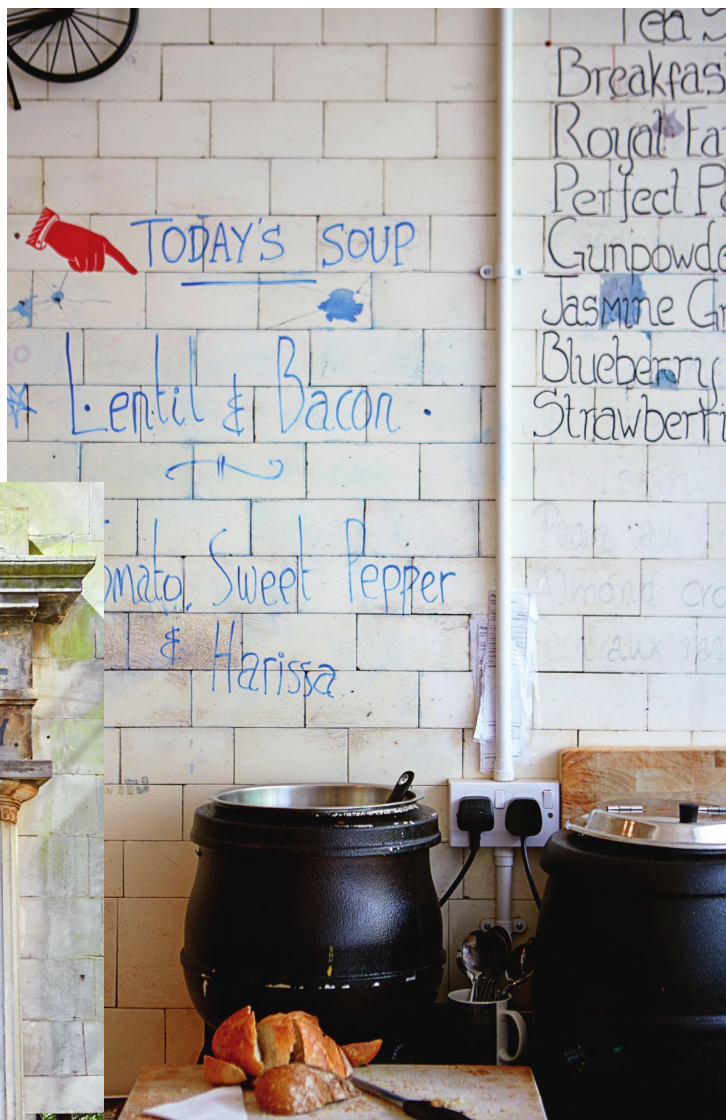 TODAY'S SOUP
Lentil & Bacon
omato, Sweet Pepper
& Harissa
Tea S
Breakfas
Royal Ea
Perfect Pe
Gunpowde
Jasmine Gr
Blueberry
Strawberri
Almond cro